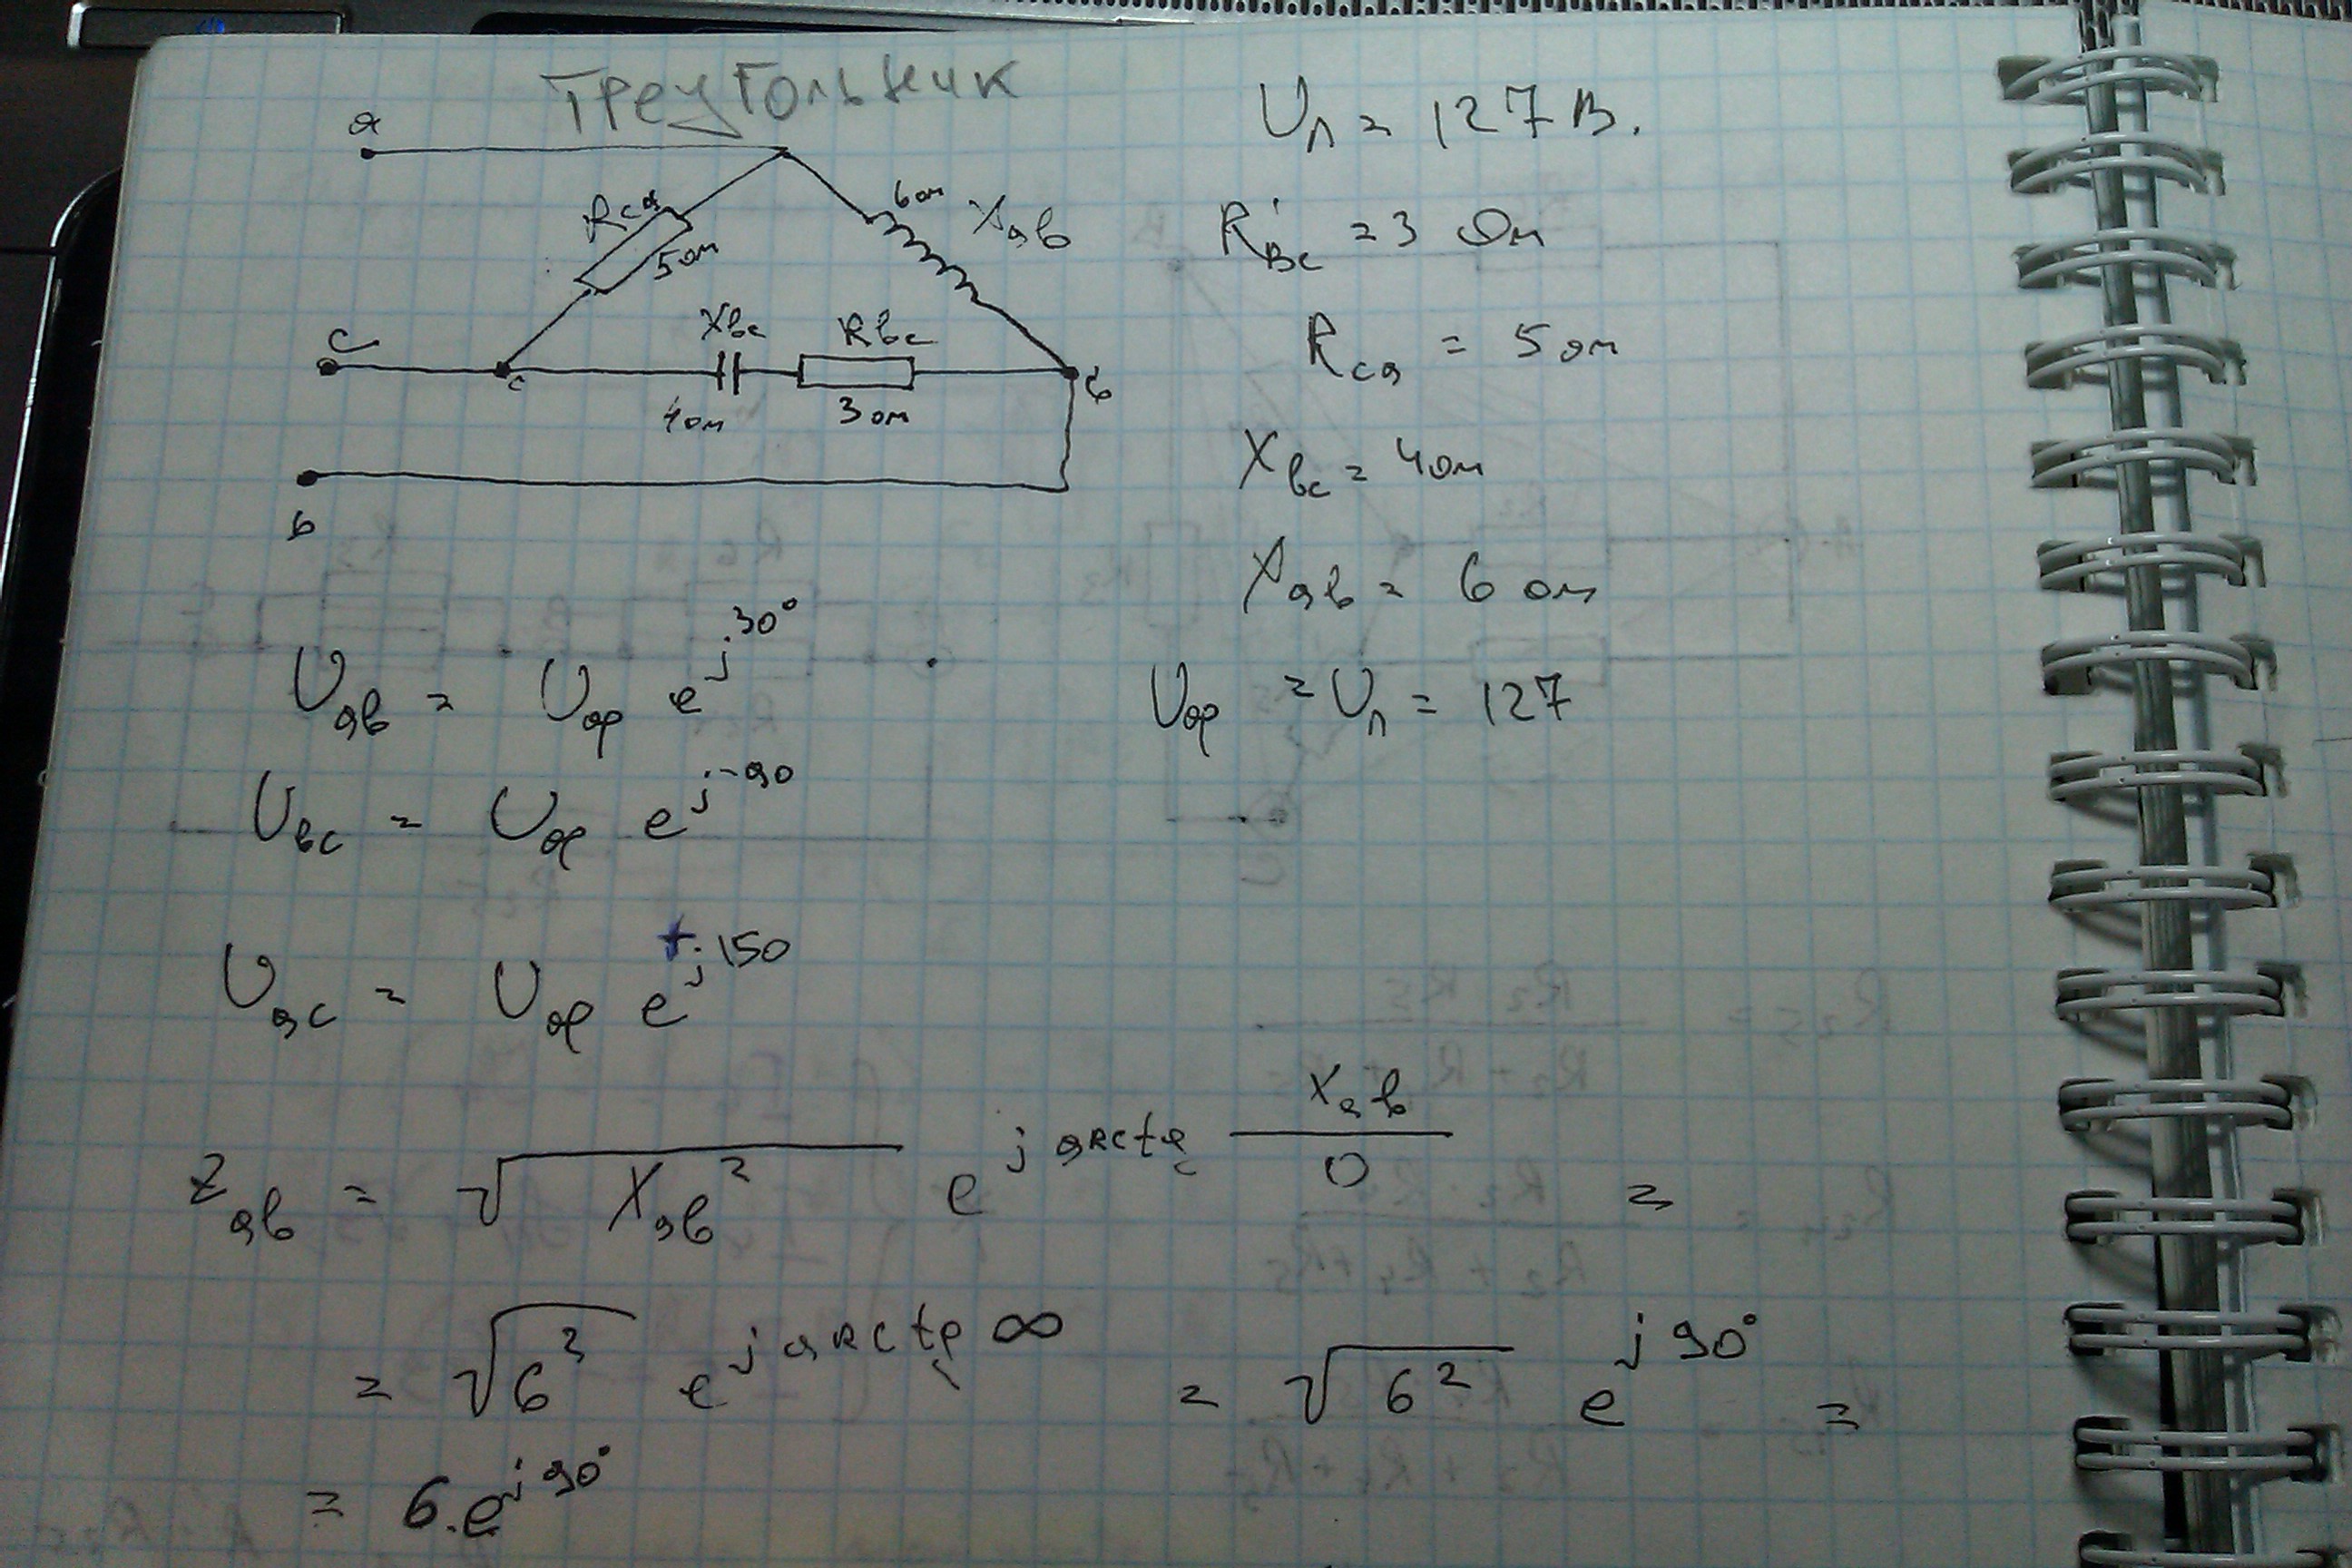 Треугольник
a
Rca
5 ом
6 ом
Xab
c
c
Xbc
Rbc
4 ом
3 ом
b
b
Uл = 127 В.
Rвс = 3 Ом
Rca = 5 ом
Xbc = 4 ом
Xab = 6 ом
Uab = Uф e^j30°
Uф = Uл = 127
Ubc = Uф e^j-90
Uac = Uф e^+j150
Zab = √Xab² e^j arctg Xab/0 =
= √6² e^j arctg ∞ = √6² e^j90° =
= 6.e^j90°